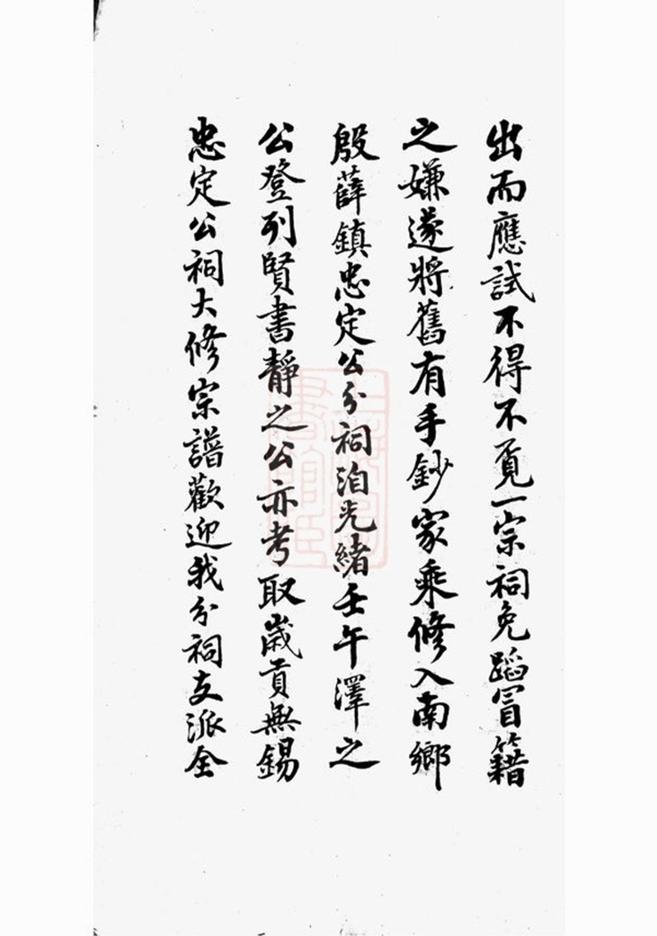 出而應試不得不覔一宗祠免蹈冒籍
之嫌遂將舊有手鈔家乘修入南鄉
殷薛鎮忠定公分祠洎光緒壬午澤之
公登列賢書靜之公亦考取歲貢無錫
忠定公祠大修宗譜歡迎我分祠支派全